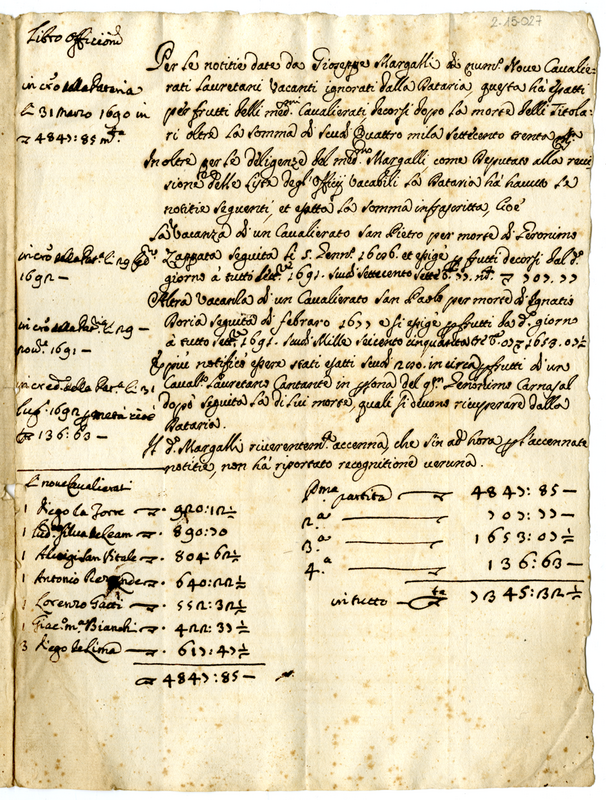 2-15-027
Libro officiorū
Per le notitie date da Gioseppe Margalli di num.º Nove Cavalie-
rati Lauretani Vacanti ignorati dalla Dataria, questa hà esatti
per frutti delli med.mi Cavalierati decorsi dopo la morte delli Titola-
ri oltre la somma di scudi quattro mila settecento trenta
In oltre per le diligenze del med.mo Margalli come Deputato alla revi-
sione delle Liste degl'Offitij Vacabili la Dataria hà havuto le
notitie seguenti, et esatto la somma infrascritta, cioè
La Vacanza di un Cavalierato San Pietro per morte di Geronimo
Zappata seguita li 5. Genn.º 1686 et esige p frutti decorsi dal d.º
giorno à tutto 1691. scudi settecento sette 707:77
Altra Vacanza di un Cavalierato San Paolo per morte d'Ignatio
Boria seguita di febraro 1677 e si esige p frutti da d.º giorno
à tutto 1691. scudi Mille seicento cinquanta 1653.07½
E più notificò essere stati esatti scudi 270. in circa p frutti di un
Caval.º Lauretano Cantante in del q.m Geronimo Carnasal
dopò seguita la di lui morte, quali si devono ricuperare dalla
Dataria.
Il d.º Margalli riverentem.e accenna, che sin ad hora p l'accennate
notitie, non hà riportato recognitione veruna.
in cro della Dataria
L 31 Marzo 1690 in
4847:85 m.ta
in cro della Dat.a L 29
1692 —
in cro della Dat.a L 29 —
nov.e 1691 —
in cred. della Dat.a L 31
lug.o 1692 p metà
136:63 —
Li nove Cavalierati
1 Diego la Torre — 920:12½
1 Silva de Leam — 890:70
1 Aluigi San Vitale — 804:62½
1 Antonio — 640:22½
1 Lorenzo Gatti — 552:32½
1 Giac.º m.a Bianchi — 422:37½
3 Diego de Lima — 617:47½
4847:85 —
P.ma partita — 4847:85 —
2.a — 707:77 —
3.a — 1653:07½
4.a — 136:63 —
in tutto — 7345:32½